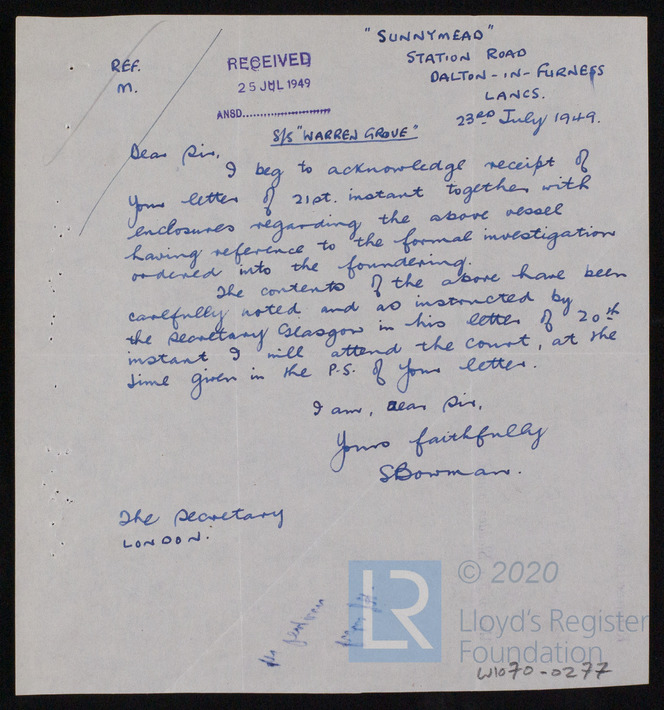 "SUNNYMEAD"
STATION ROAD
DALTON-IN-FURNESS
LANCS.
23RD July 1949.
REF.
M.
RECEIVED
25 JUL 1949
ANSD.
S/S "WARREN GROVE"
Dear Sir,
I beg to acknowledge receipt of
your letter of 21st. instant together with
enclosures regarding the above vessel
having reference to the formal investigation
ordered into the foundering.
The contents of the above have been
carefully noted and as instructed by
the Secretary Glasgow in his letter of 20th
instant I will attend the court, at the
time given in the P.S. of your letter.
I am, Dear Sir,
Yours faithfully
SBowman.
The Secretary
LONDON.
LR
© 2020
Lloyd's Register
Foundation
W1070-0277